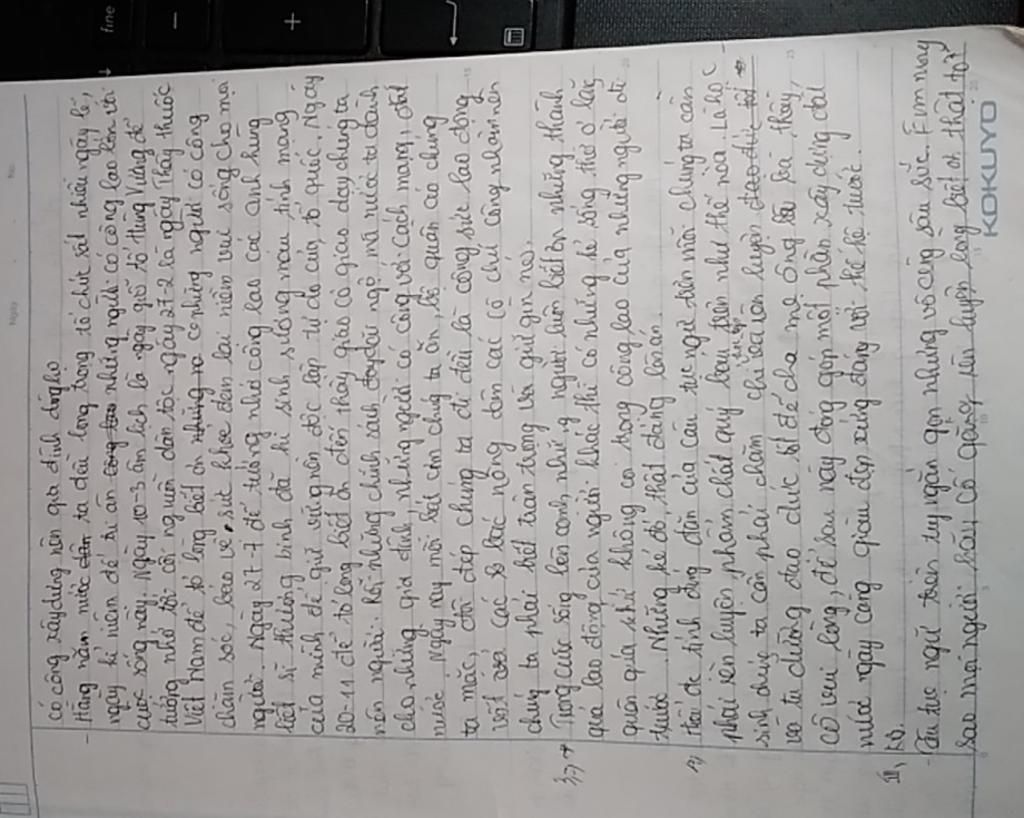 có công xây dựng nên gia đình dòng họ
- Hàng năm nước ta đều long trọng tổ chức rất nhiều ngày lễ,
ngày kỉ niệm để tri ân những người có công lao lớn với
cuộc sống này. Ngày 10-3 âm lịch là ngày giỗ tổ Hùng Vương để
tưởng nhớ tới cội nguồn dân tộc ngày 27-2 là ngày Thầy thuốc
Việt Nam để tỏ lòng biết ơn những người có công
chăm sóc, bảo vệ sức khoẻ đem lại niềm vui sống cho mọi
người. Ngày 27-7 để tưởng nhớ công lao các anh hùng
liệt sĩ thương binh đã hi sinh xương máu tính mạng
của mình để giữ vững nền độc lập tự do của tổ quốc. Ngày
20-11 để tỏ lòng biết ơn đến thầy giáo cô giáo dạy chúng ta
nên người. Rồi những chính sách đãi ngộ mà nước ta dành
cho những gia đình, những người có công với cách mạng, đất
nước. Ngày nay mỗi bát cơm chúng ta ăn, bộ quần áo chúng
ta mặc, đôi dép chúng ta đi đều là công sức lao động
vất vả các bác nông dân các cô chú công nhân nên
chúng ta phải biết trân trọng và giữ gìn nó.
3, → Trong cuộc sống bên cạnh, những người luôn biết ơn những thành
quả lao động của người khác thì có những kẻ sống thờ ơ lãng
quên quá khứ không coi trọng công lao của những người đi
trước. Những kẻ đó thật đáng lên án.
Thấy được tính đúng đắn của câu tục ngữ trên mỗi chúng ta cần
phải rèn luyện phẩm chất quý báu trên như thế nào. Là học
sinh chúng ta cần phải chăm chỉ học tập rèn luyện
và tu dưỡng đạo đức tốt để cha mẹ ông bà bà thầy,
cô vui lòng, để sau này đóng góp một phần xây dựng đất
nước ngày càng giàu đẹp xứng đáng với thế hệ trước.
III, KB.
- Câu tục ngữ trên tuy ngắn gọn nhưng vô cùng sâu sắc. Em mong
sao mọi người hãy cố gắng rèn luyện lòng biết ơn thật tốt
KOKUYO
fine